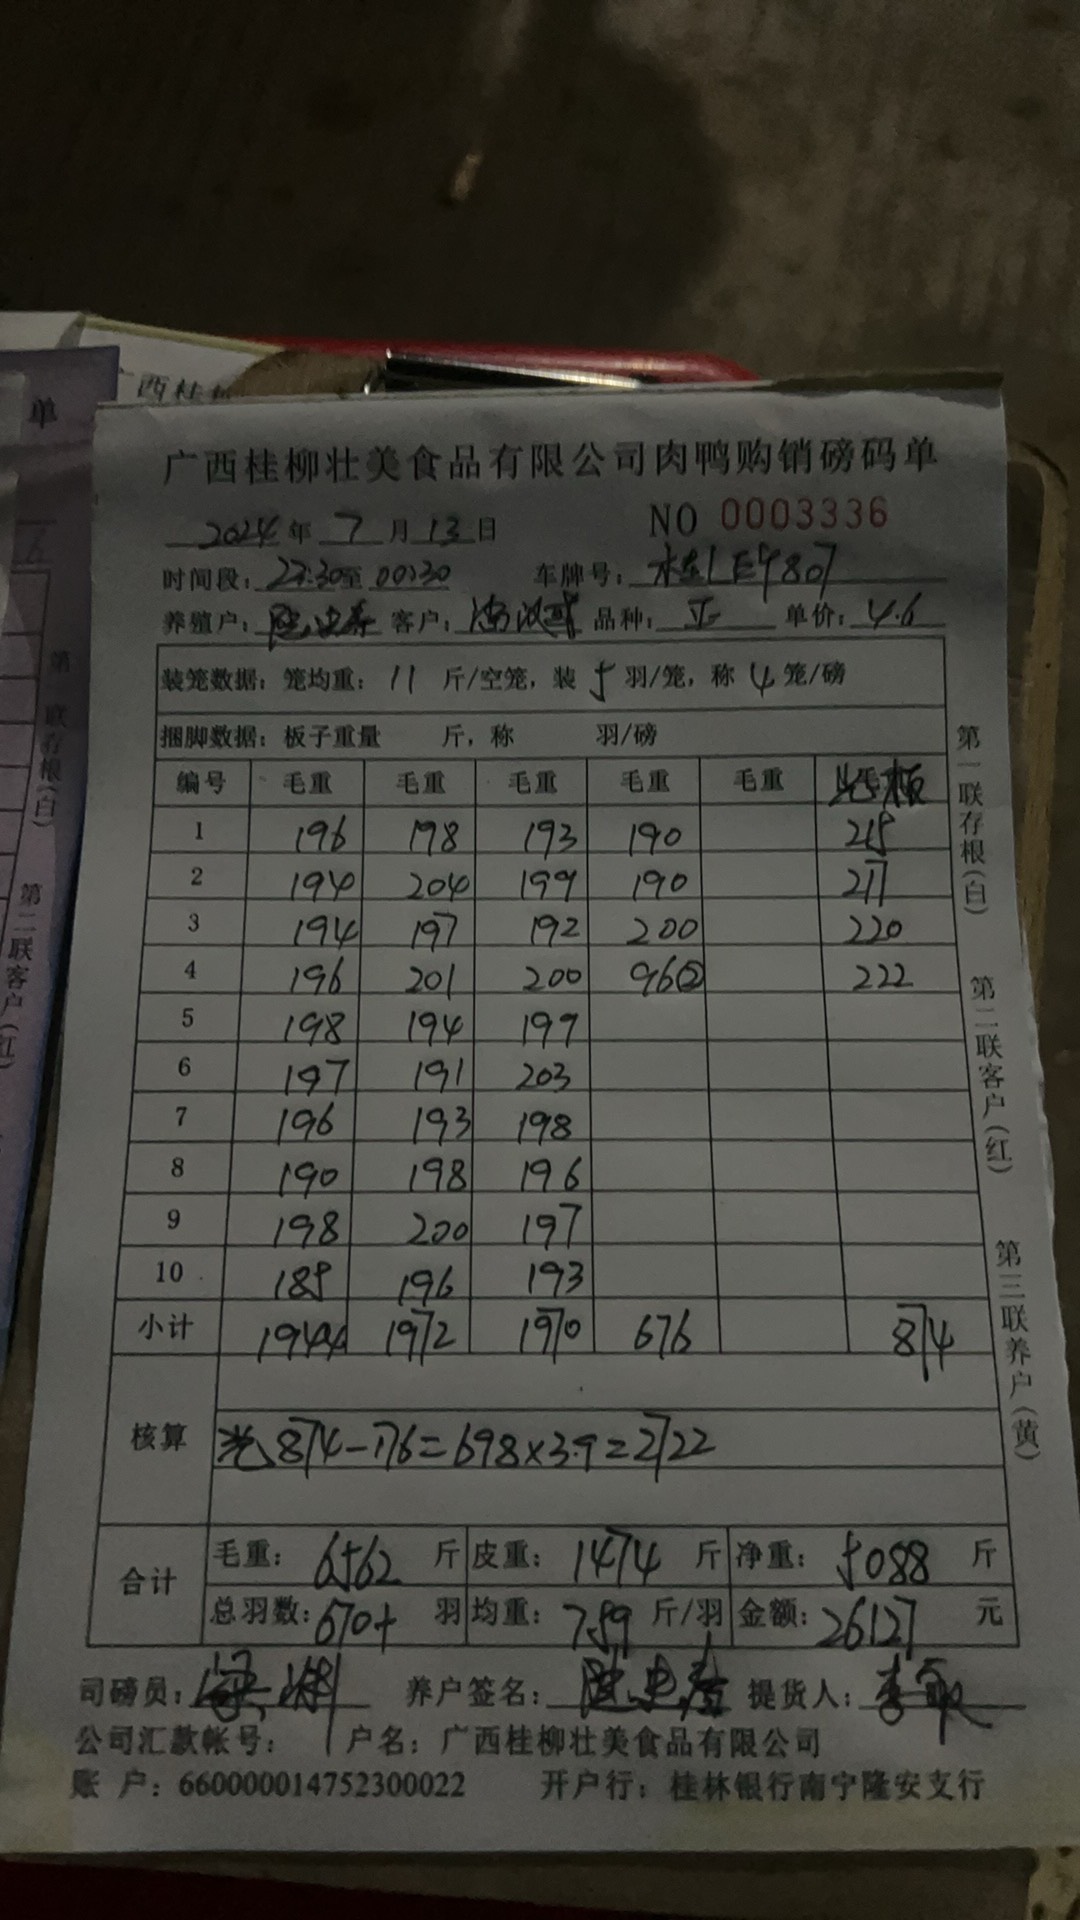 单
西桂
广西桂柳壮美食品有限公司肉鸭购销磅码单
2024年 7月 13日 NO 0003336
时间段: 22:30至00:30 车牌号: 桂LE9807
养殖户: 客户: 品种: 正 单价: 4.6
装笼数据: 笼均重: 11 斤/空笼, 装 5 羽/笼, 称 4 笼/磅
捆脚数据: 板子重量 斤, 称 羽/磅
编号 毛重 毛重 毛重 毛重 毛重 光板
1 196 198 193 190 215
2 194 204 199 190 217
3 194 197 192 200 220
4 196 201 200 96② 222
5 198 194 199
6 197 191 203
7 196 193 198
8 190 198 196
9 198 200 197
10 185 196 193
小计 1944 1972 1970 676 874
核算 光 874-176=698×3.9=2722
合计 毛重: 6562 斤 皮重: 1474 斤 净重: 5088 斤
总羽数: 670+ 羽 均重: 759 斤/羽 金额: 26127 元
司磅员: 养户签名: 提货人:
公司汇款帐号: 户名: 广西桂柳壮美食品有限公司
账 户: 660000014752300022 开户行: 桂林银行南宁隆安支行
第一联存根(白)
第二联客户(红)
第三联养户(黄)
第 联存根(白)
第二联客户(红)